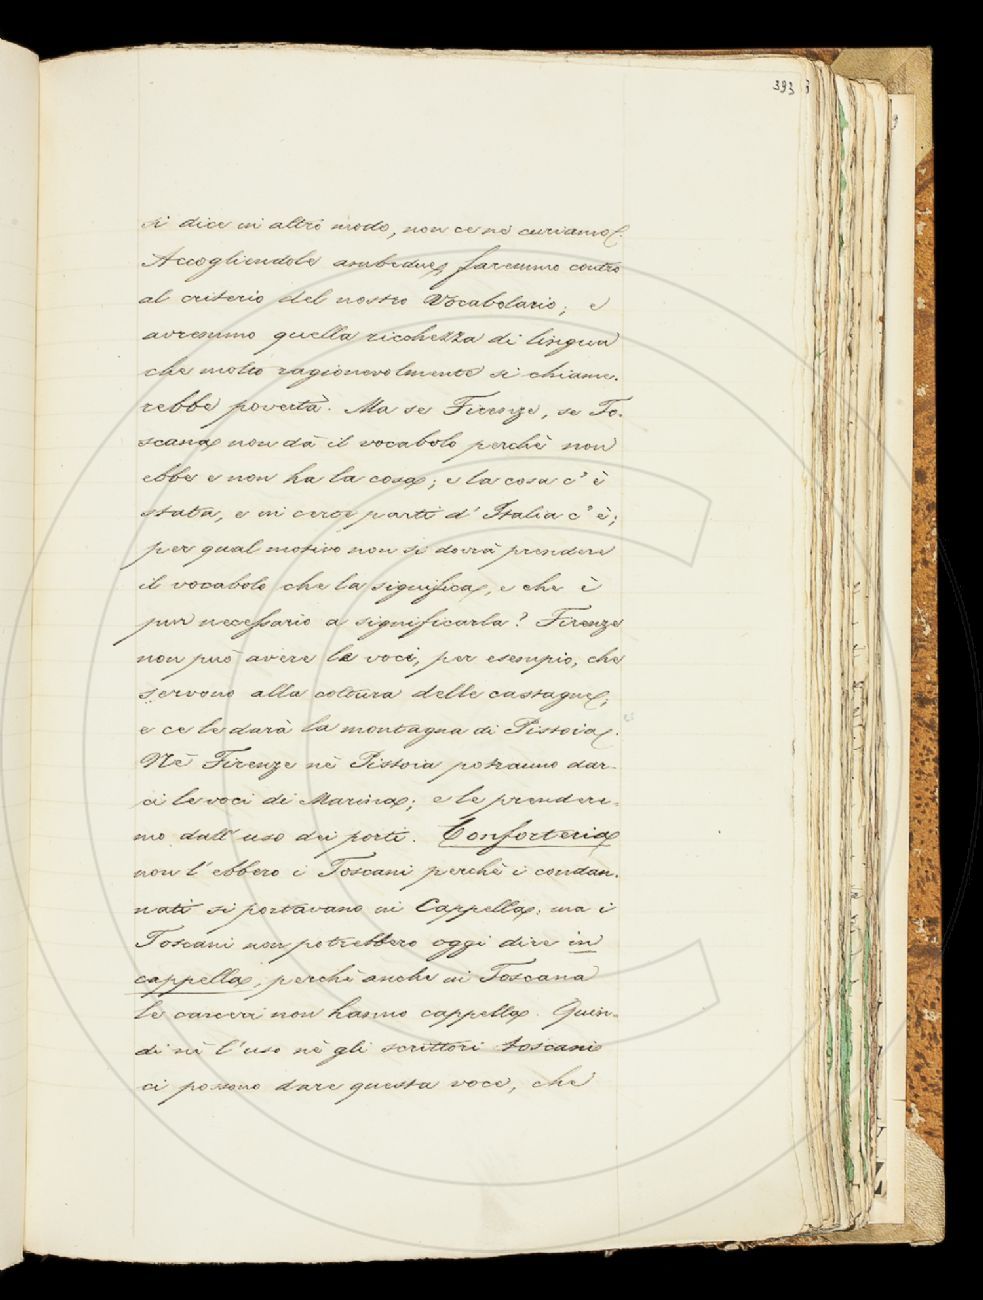 393
si dice in altro modo, non ce ne curiamo.
Accogliendole ambedue, faremmo contro
al criterio del nostro Vocabolario; e
avremmo quella ricchezza di lingua
che molto ragionevolmente si chiame-
rebbe povertà. Ma se Firenze, se To-
scana non dà il vocabolo perchè non
ebbe e non ha la cosa; e la cosa c'è
stata, e in certe parti d'Italia c'è;
per qual motivo non si dovrà prendere
il vocabolo che la significa, e che è
pur necessario a significarla? Firenze
non può avere le voci, per esempio, che
servono alla coltura delle castagne;
e ce le darà la montagna di Pistoia.
Nè Firenze nè Pistoia potranno dar-
ci le voci di Marina; e le prendere-
mo dall'uso dei porti. Conforteria
non l'ebbero i Toscani perchè i condan-
nati si portavano in Cappella: ma i
Toscani non potrebbero oggi dire in
cappella, perchè anche in Toscana
le carceri non hanno cappella. Quin-
di nè l'uso nè gli scrittori toscani
ci possono dare questa voce, che